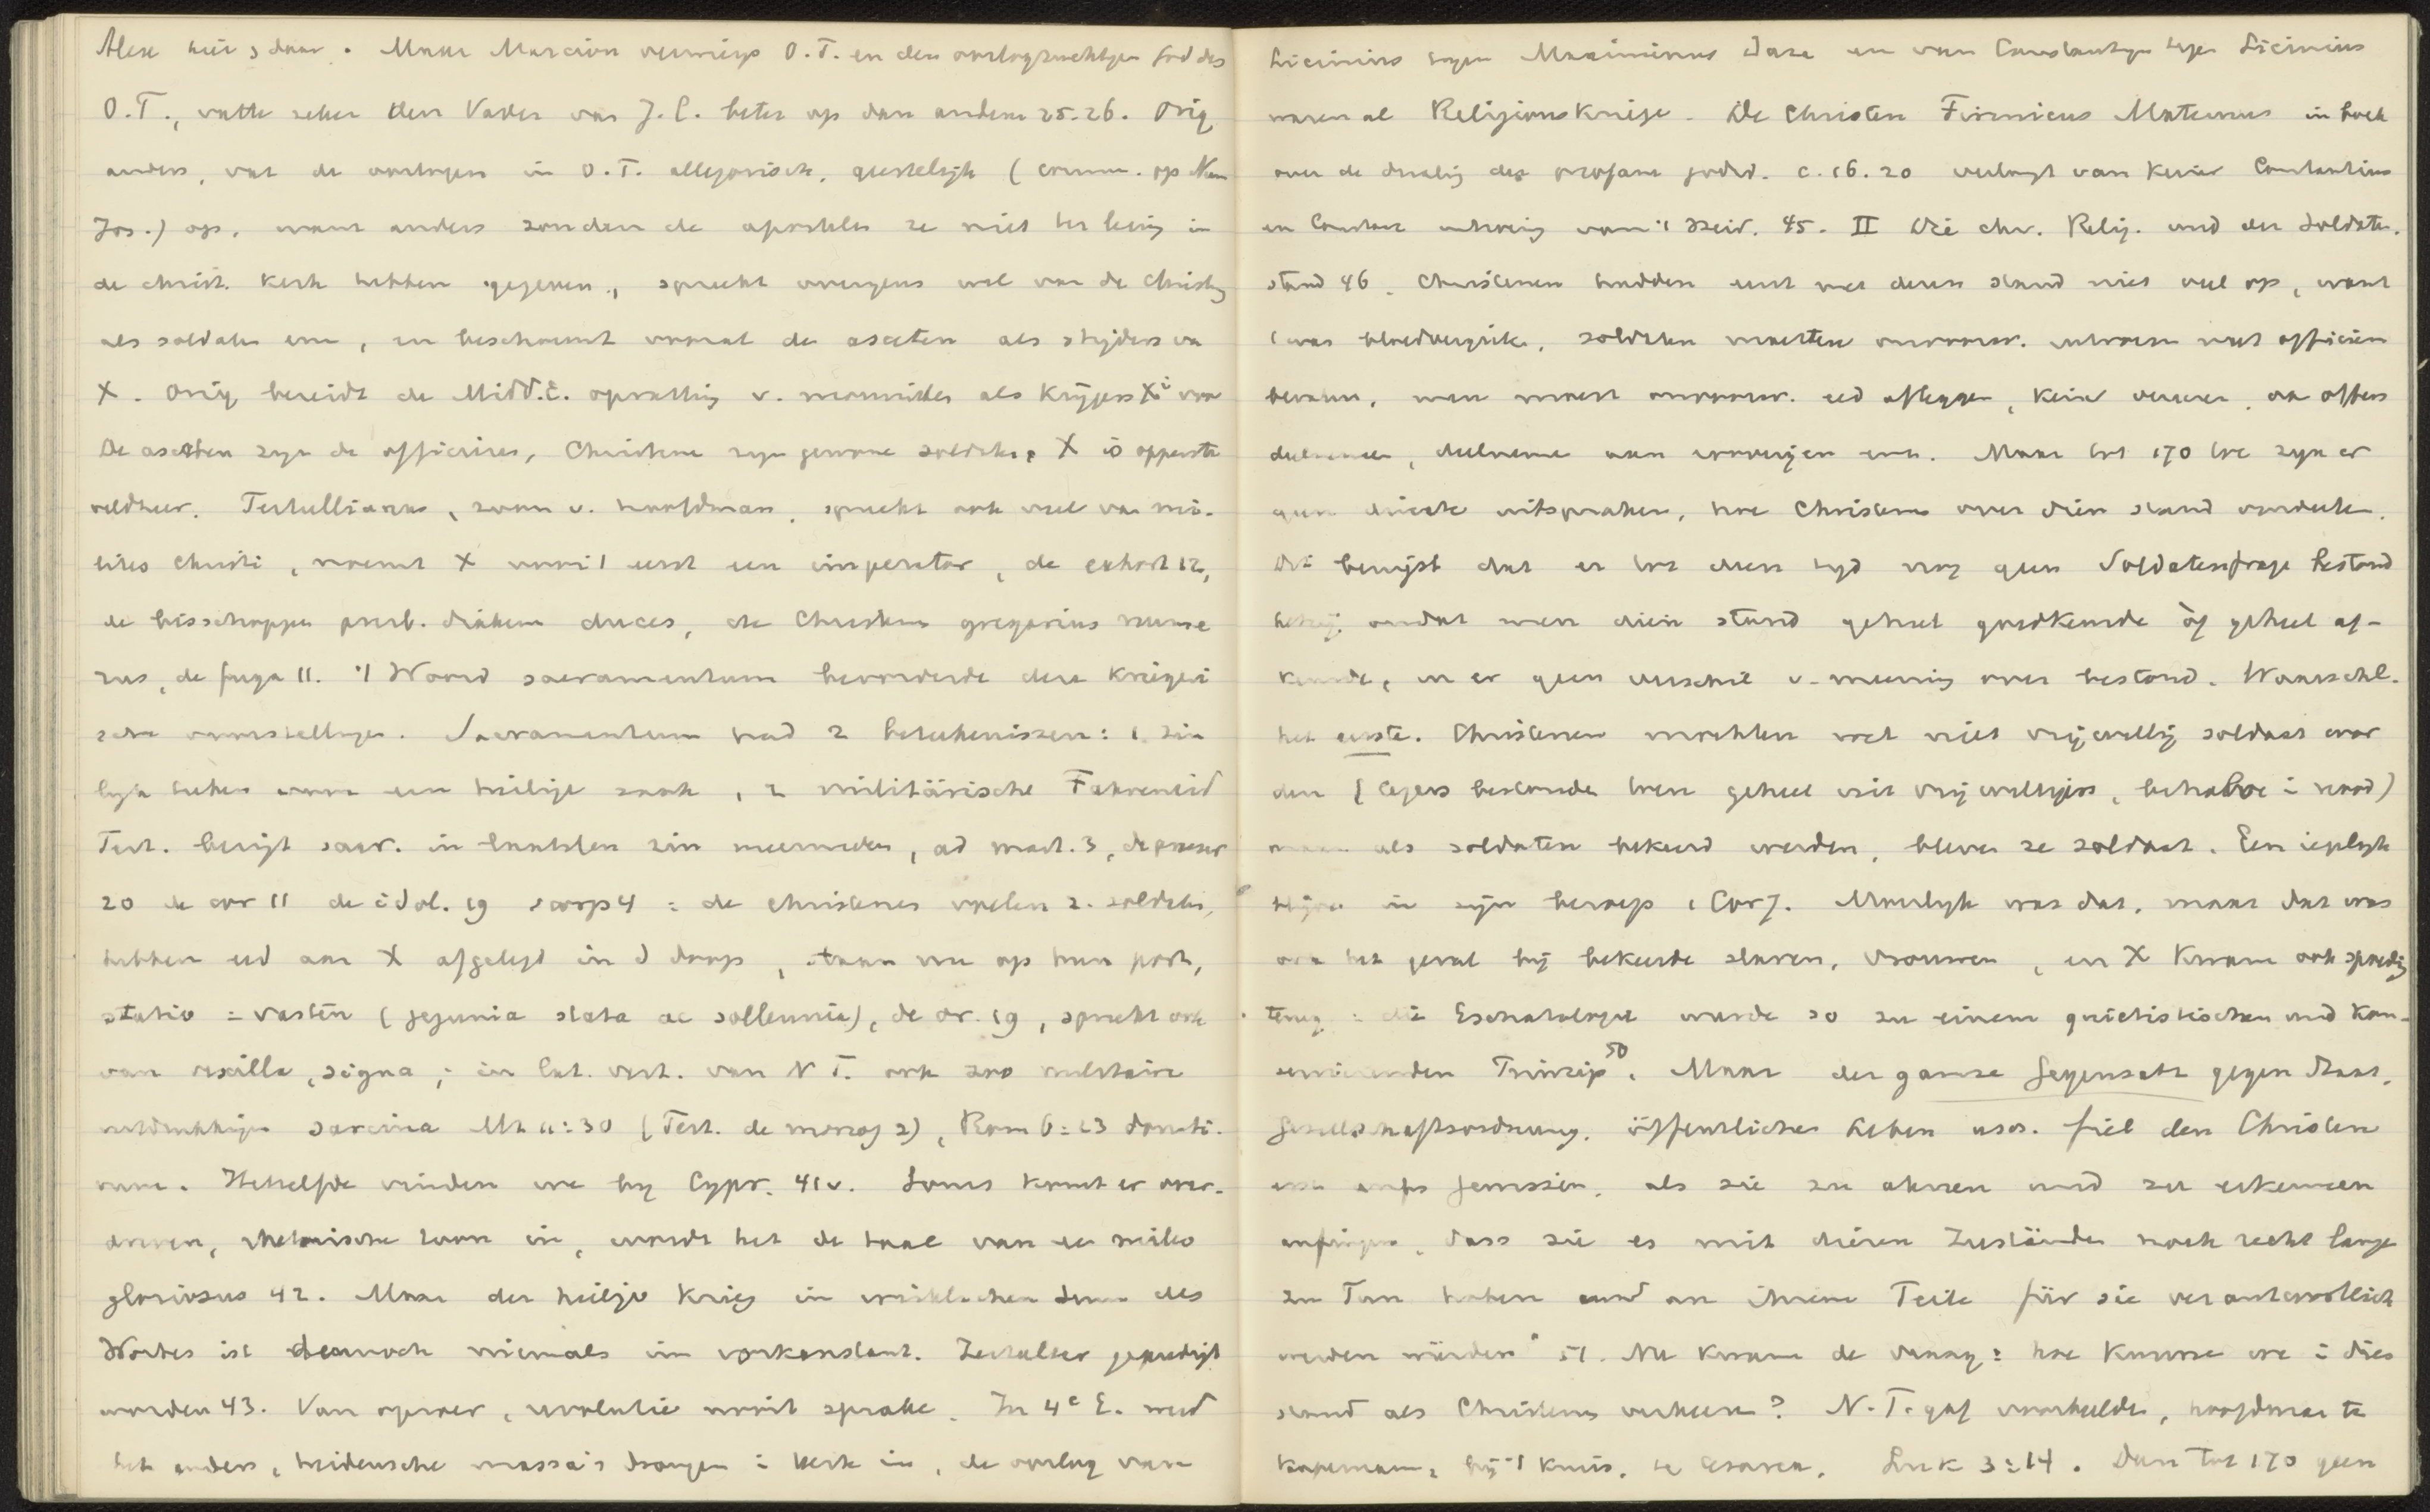 Alex hier & daar. Maar Marcion verwierp O.T. en den oorlogzuchtigen God des
O.T., vatte zeker den Vader van J.C. beter op dan anderen 25-26. Orig
anders, vat de oorlogen in O.T. allegorisch, geestelijk (comm. op Num
Jos.) op, want anders zouden de apostelen ze niet ter lezing in
de christ. kerk hebben gegeven, spreekt overigens wel van de Christ.
als soldaten enz, en beschouwt vooral de asceten als strijders v.
X. Orig bereidt de Midd.E. opvatting v. monniken als Krijgers Xi voor
De asceten zijn de officieren, Christenen zijn gewone soldaten, X is opperste
veldheer. Tertullianus, zoon v. hoofdman, spreekt ook veel van mi-
lites Christi, noemt X voor 't eerst een imperator, de exhort 12,
de bisschoppen presb. diakenen duces, de Christen gregarius nume-
rus, de fuga 11. 't Woord sacramentum bevorderde deze Kriegeri
sche voorstellingen. Sacramentum had 2 beteekenissen: 1 zin
lijk teeken voor een heilige zaak, 2 militärische Fahneneid
Tert. bezigt sacr. in laatsten zin meermalen, ad mart. 3, de praescr
20 de cor 11 de idol. 19 scorp 4 = de christenen voelen z. soldaten,
hebben eed aan X afgelegd in d doop, staan nu op hun post,
statio = vasten (jejunia stata ac sollennia), de or. 19, spreekt ook
van vexilla, signa; in Lat. vert. van N T. ook zoo militaire
uitdrukkingen sarcina Mt 11:30 (Tert. de monog 2), Rom 6:23 donati-
vum. Hetzelfde vinden we bij Cypr. 41v. Soms komt er over-
dreven, rhetorische toon in, wordt het de taal van een miles
gloriosus 42. Maar der heilige Krieg in wirklichen Sinne des
Wortes ist dennoch niemals im vorkonstant. Zeitalter gepredigt
worden 43. Van oproer, revolutie nooit sprake. In 4e E. werd
het anders, heidensche massa's drongen i kerk in, de oorlog van
Licinius tegen Maximinus Daza en van Constantijn tegen Licinius
waren al Religionskriege. De Christen Firmicus Maternus in boek
over de dwaling der profane godsd. c. 16. 20 verlangt van keizer Constantius
en Constans uitroeiing van 't Heid. 45. II Die chr. Relig. und der Soldaten-
stand 46. Christenen hadden eerst met dezen stand niet veel op, want
't was bloedvergieten, soldaten moesten onvoorw. gehoorzamen met officieren
bevelen, men moest onvoorw. eed afleggen, Keizer vereeren, aan offers
deelnemen, deelneme aan vervolgingen enz. Maar tot 170 toe zijn er
geen directe uitspraken, hoe Christenen over dien stand oordeelden.
Dit bewijst dat er tot dien tijd nog geen Soldatenfrage bestond
hetzij omdat men dien stand geheel goedkeurde òf geheel af-
keurde, en er geen verschil v. meening over bestond. Waarschl.
het eerste. Christenen mochten wel niet vrijwillig soldaat wor
den (legers bestonden toen geheel uit vrijwilligers, behalve i nood)
maar als soldaten bekeerd werden, bleven ze soldaat. Een ieglijk
blijve in zijn beroep 1 Cor 7. Moeilijk was dat, maar dat was
ook het geval bij bekeerde slaven, vrouwen, en X kwam ook spoedig
terug: die Eschatologie wurde so zu einem quietistischen und kon-
servierenden Prinzip 50. Maar der ganze Gegensatz gegen Staat,
Gesellschaftsordnung, öffentliches Leben usw. fiel den Christen
erst aufs Gewissen, als sie zu ahnen und zu erkennen
anfingen, dass sie es mit diesen Zuständen noch recht lange
zu Tun haben und an ihrem Teile für sie verantwortlich
werden würden" 51. Nu kwam de vraag: hoe kunnen we i dien
stand als Christenen verkeeren? N.T. gaf voorbeelden, hoofdman te
Kapernaum, bij 't Kruis, te Cesarea, Luk 3:14. Dan tot 170 geen